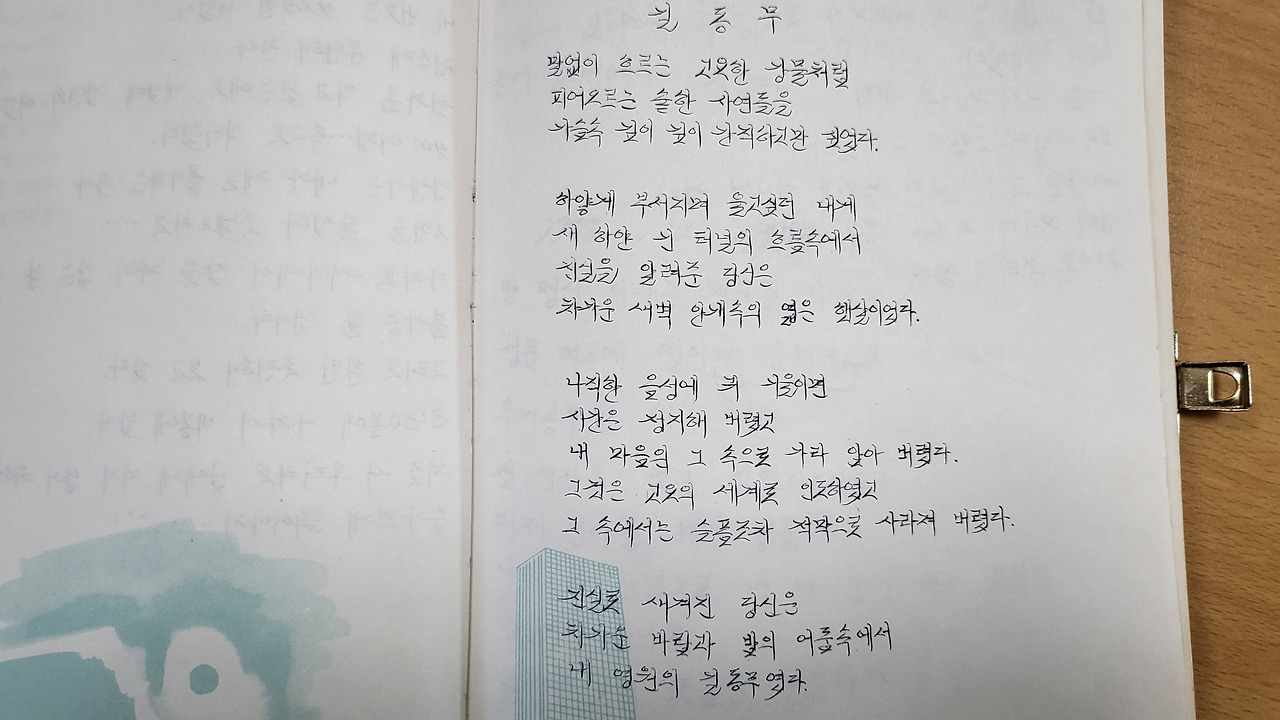 길 동 무
말없이 흐르는 고요한 강물처럼
피어오르는 숱한 사연들을
가슴속 깊이 깊이 간직하고만 있었다.
하얗게 부서지며 울고싶던 내게
새 하얀 긴 터널의 흐름속에서
진실을 알려준 당신은
차가운 새벽 안개속의 엷은 햇살이었다.
나직한 음성에 귀 기울이면
시간은 정지해 버렸고
내 마음은 그 속으로 가라 앉아 버렸다.
그것은 고요의 세계로 인도하였고
그 속에서는 슬픔조차 적막으로 사라져 버렸다.
진실로 새겨진 당신은
차가운 바람과 밤의 어둠속에서
내 영원의 길동무였다.